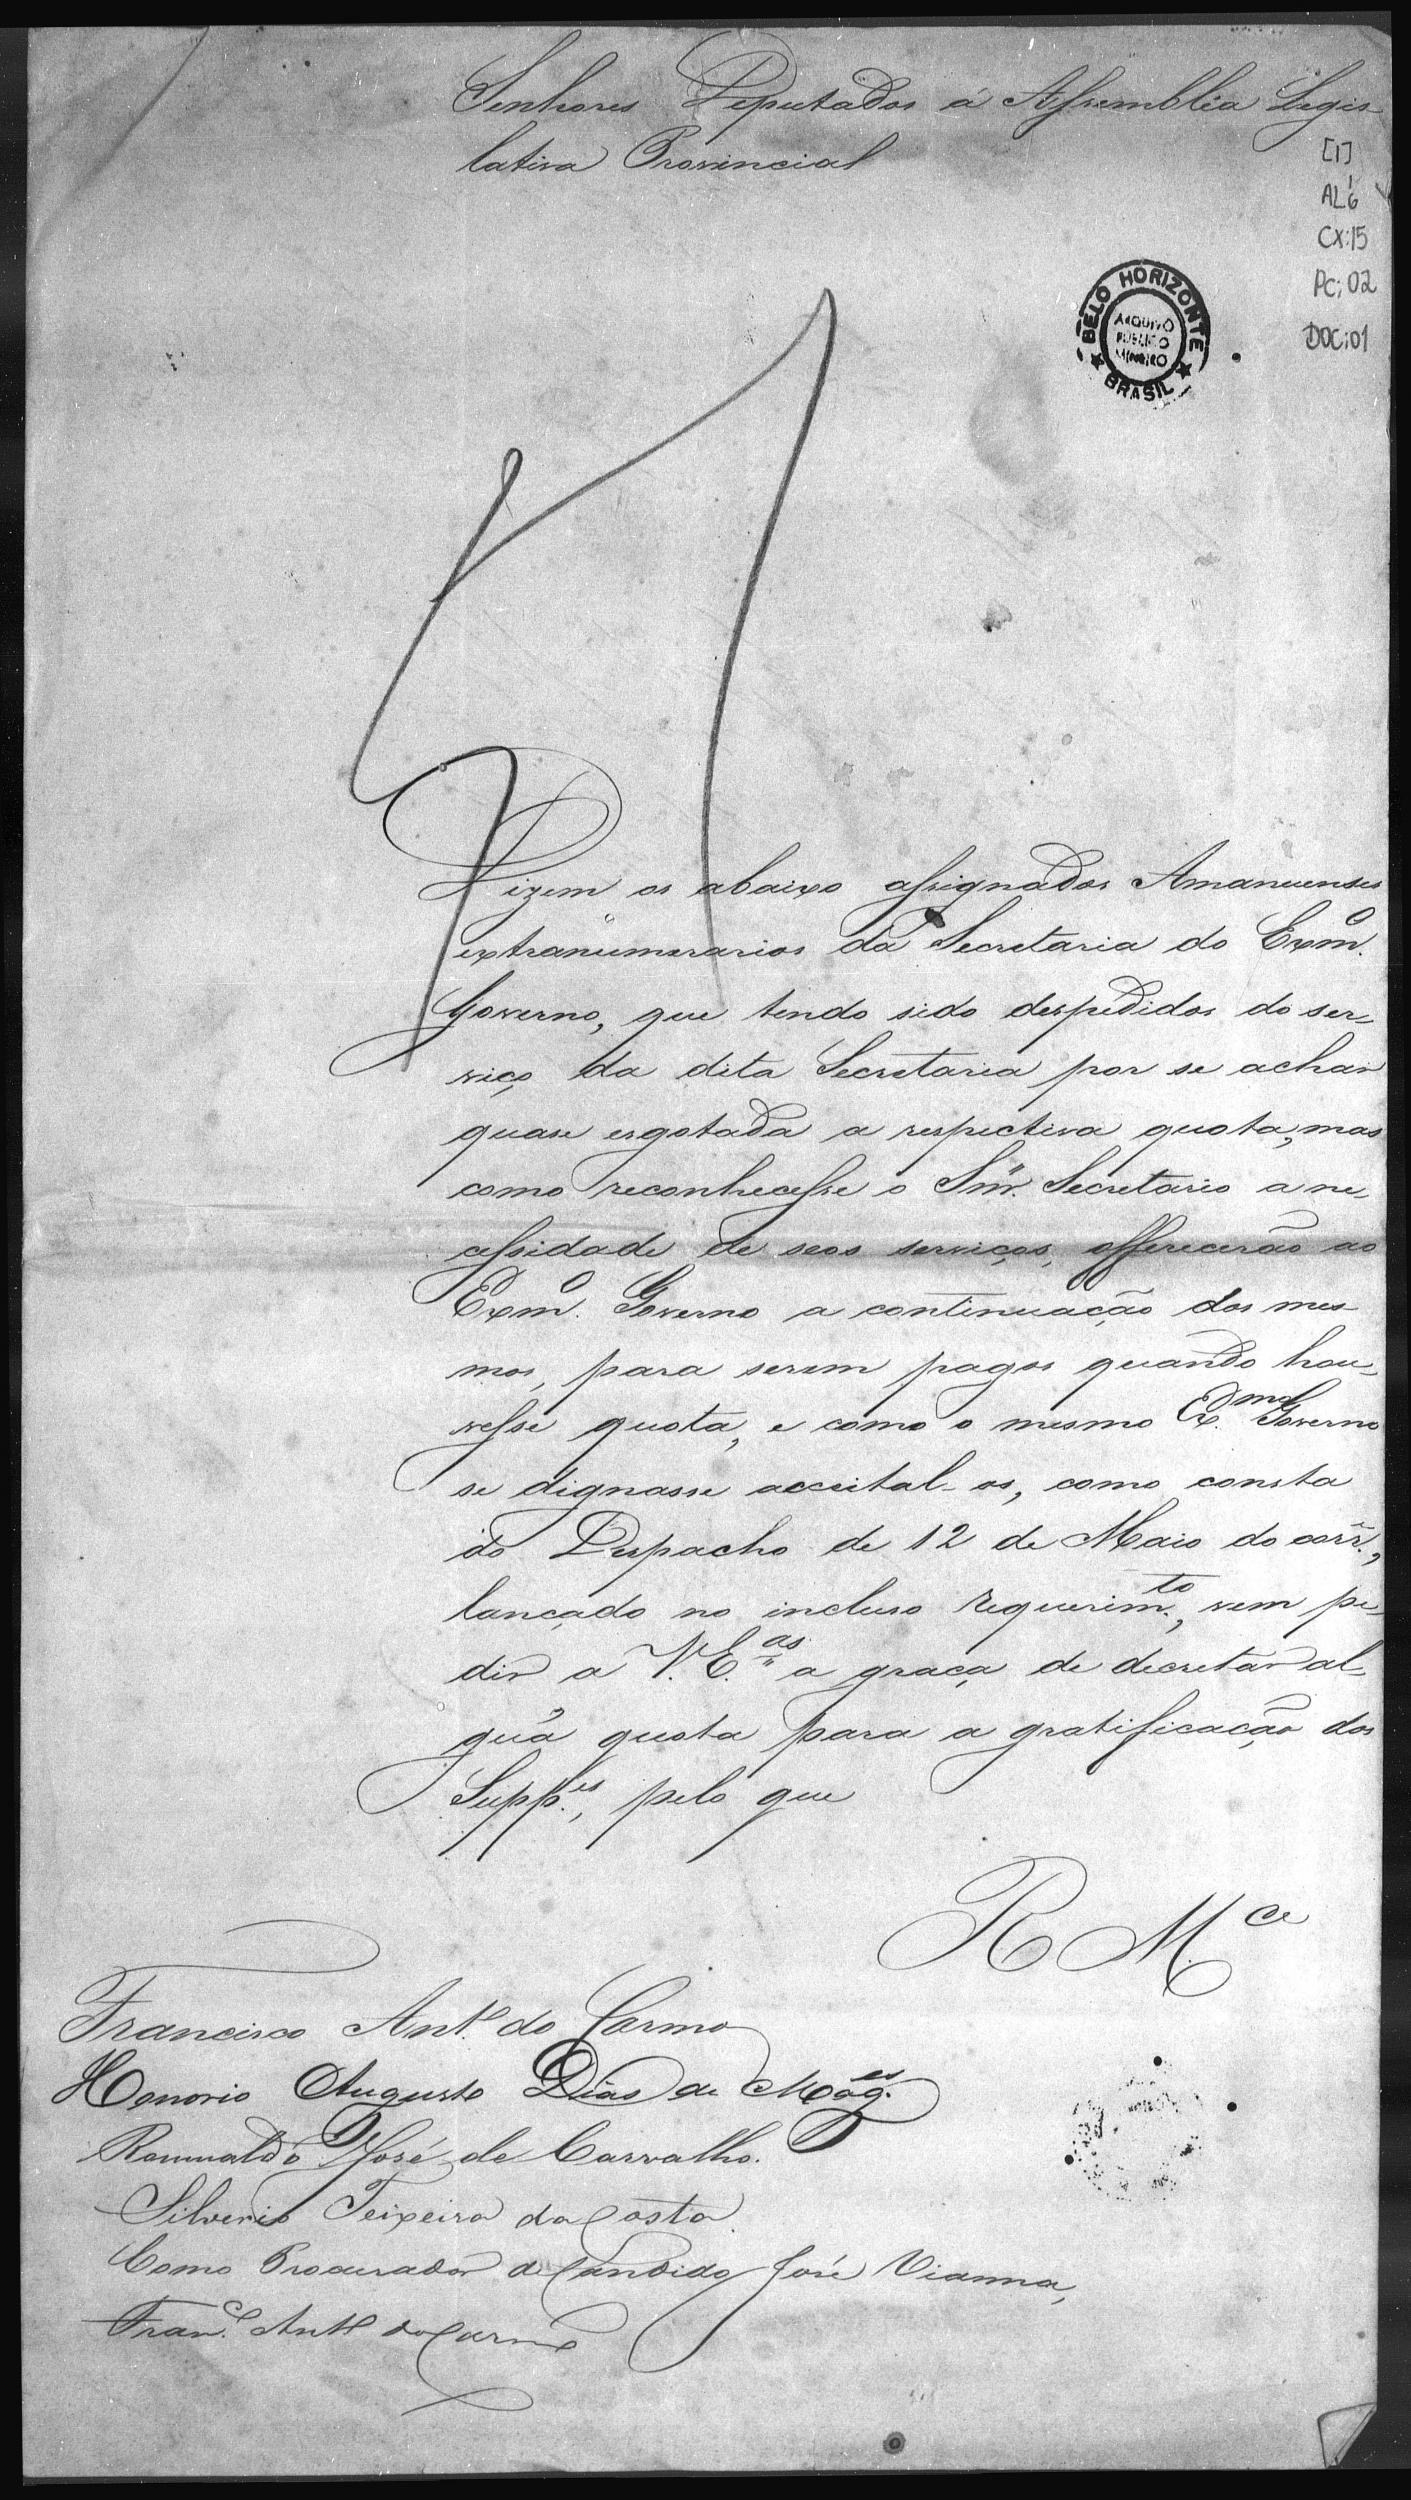 Senhores Deputados á Assembléa Legis-
lativa Provincial
[1]
AL 1/6
CX:15
PC: 02
DOC:01
BELO HORIZONTE
ARQUIVO
PUBLICO
MINEIRO
BRASIL
Dizem os abaixo assignados Amanuenses
extranumerarios da Secretaria do Exmº.
Governo, que tendo sido despedidos do ser-
viço da dita Secretaria por se achar
quase esgotada a respectiva quota, mas
como reconhecesse o Snr. Secretario a ne-
cessidade de seos serviços, offerecerão ao
Exmº. Governo a continuação dos mes-
mos, para serem pagos quando hou-
vesse quota, e como o mesmo Ex.mo Governo
se dignasse acceital-os, como consta
do Despacho de 12 de Maio do corr.,
lançado no incluso requerim.to, vem pe-
dir a V. E.as a graça de decretar al-
guã quota para a gratificação dos
Supp.es, pelo que
R M.ce
Francisco Ant.º do Carmo
Honorio Augusto Dias de Mag.es
Romualdo José de Carvalho.
Silverio Teixeira da Costa
Como Procurador de Candido José Vianna,
Fran.co Ant.º do Carmo